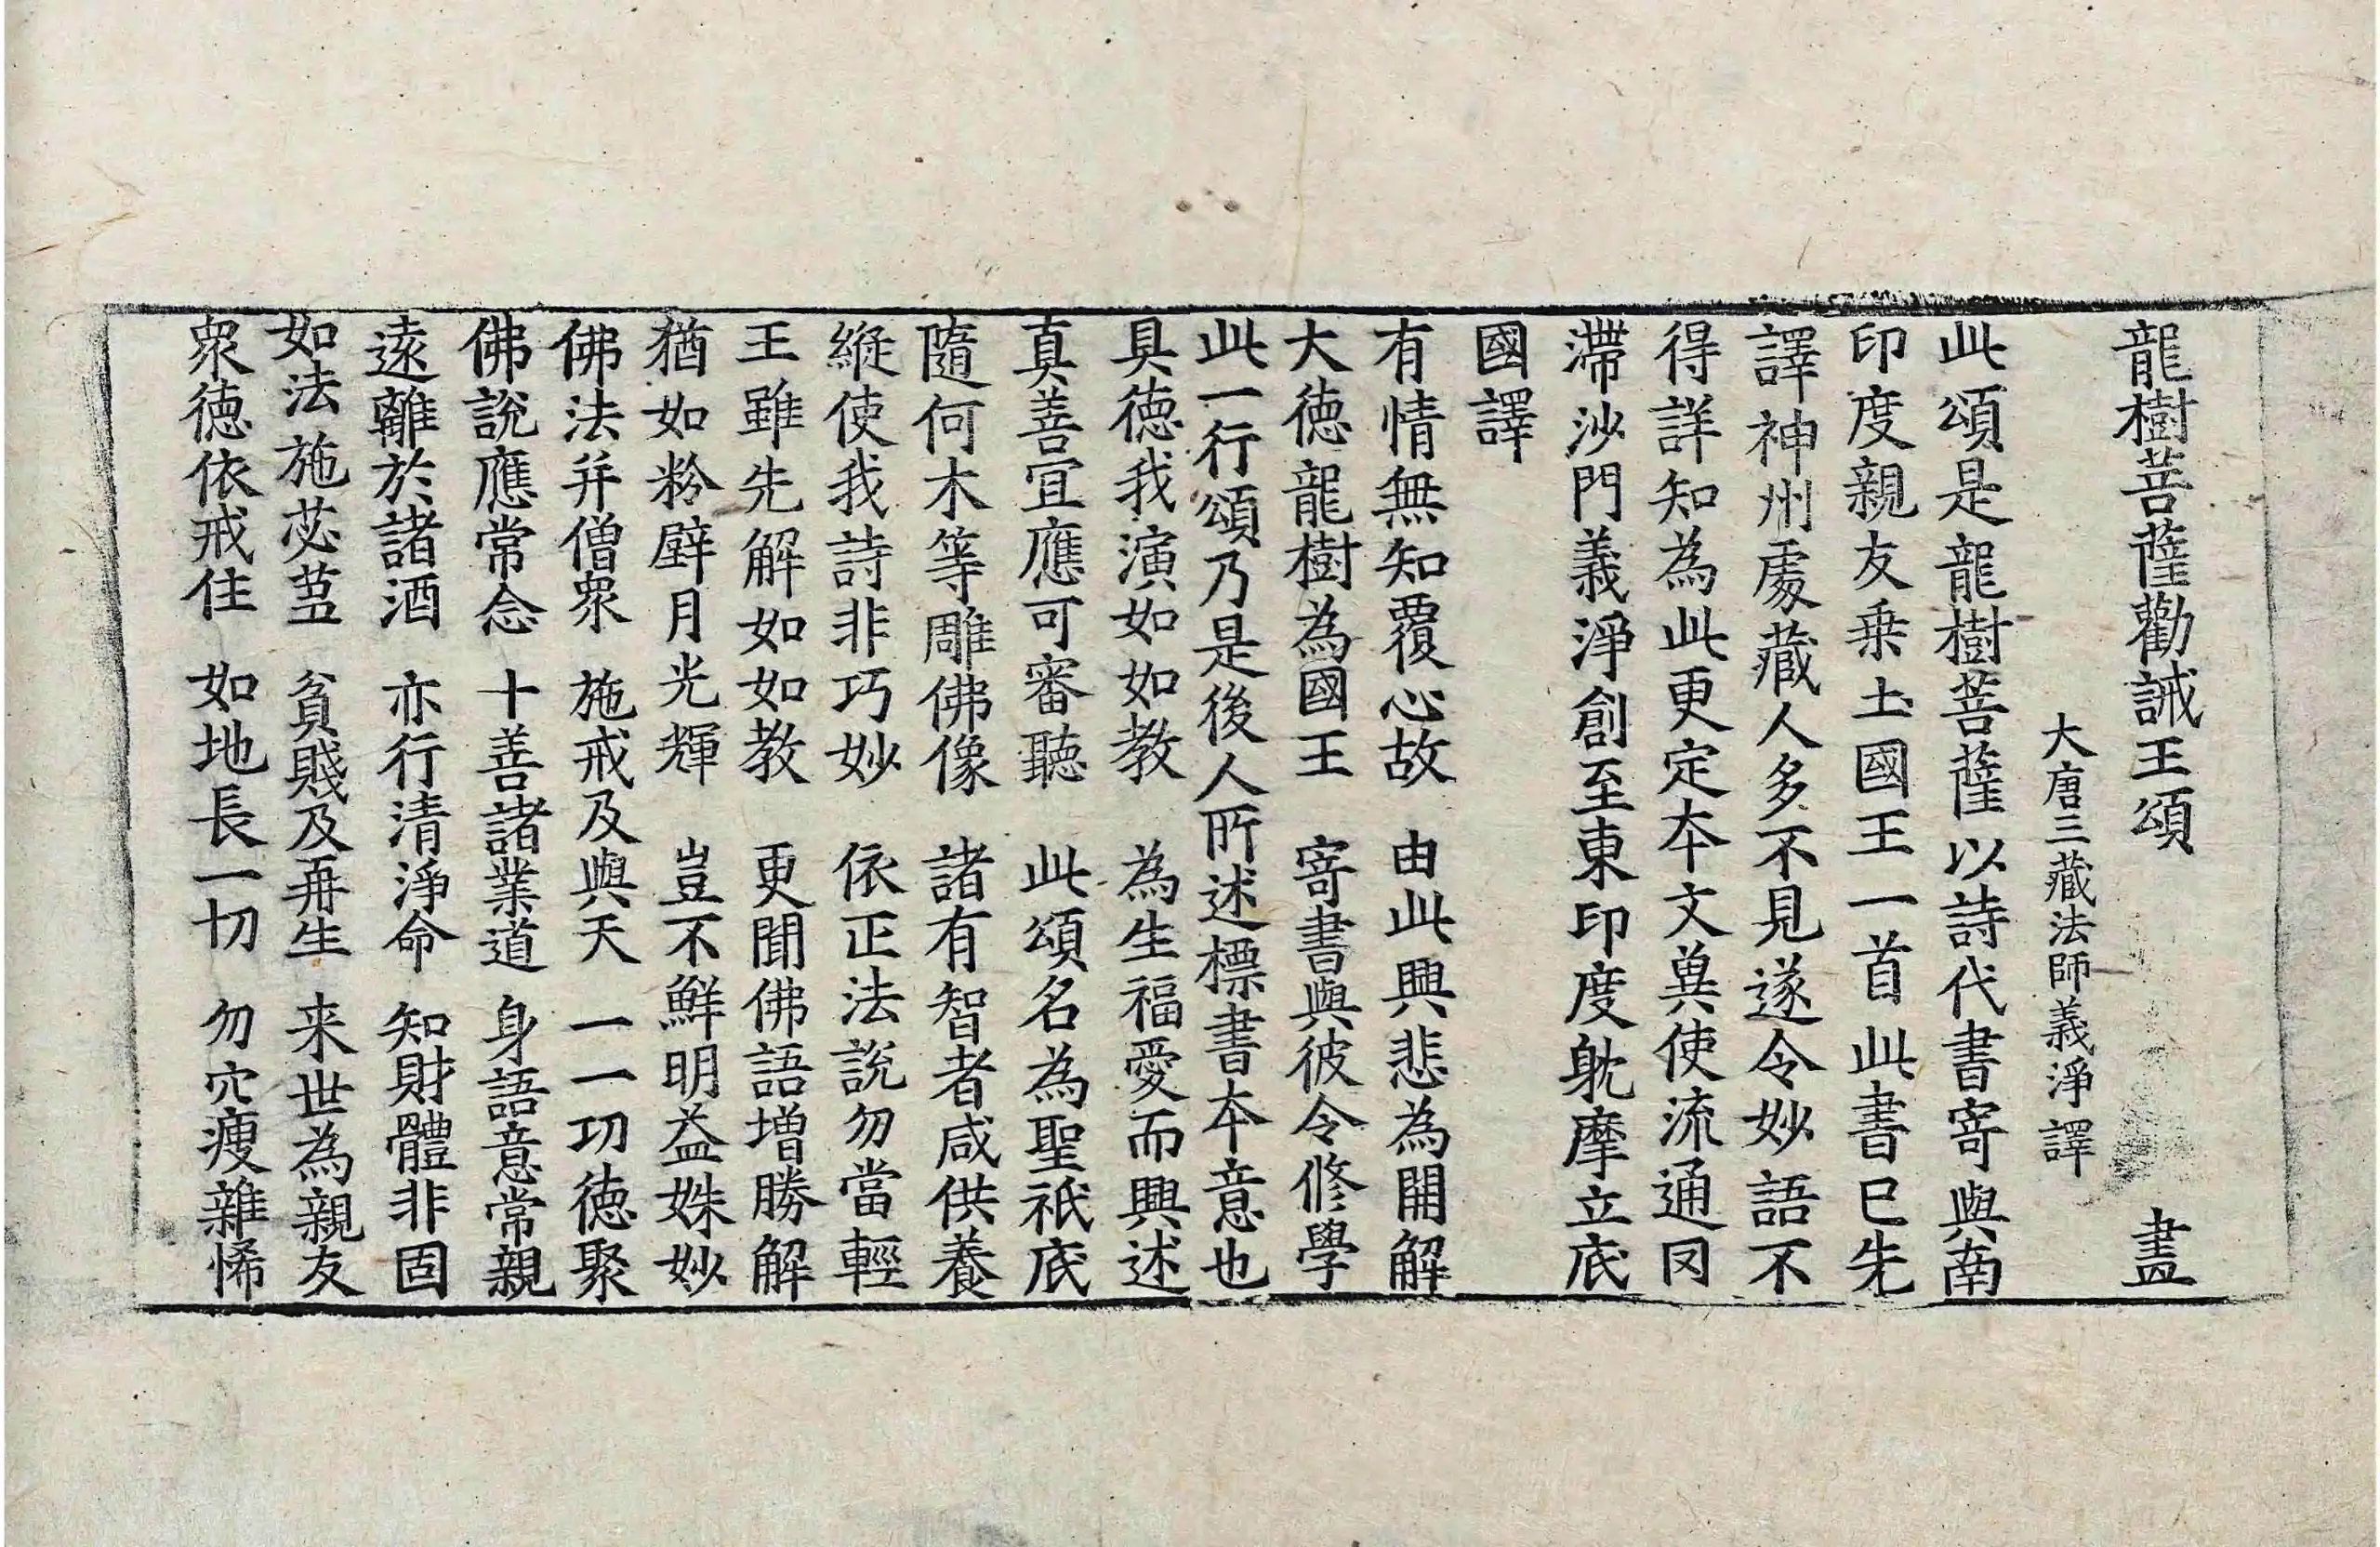 龍樹菩薩勸誡王頌 晝
大唐三藏法師義淨譯
此頌是龍樹菩薩以詩代書寄與南
印度親友乗土國王一首此書已先
譯神州處藏人多不見遂令妙語不
得詳知為此更定本文兾使流通囙
滯沙門義淨創至東印度躭摩立底
國譯
有情無知覆心故 由此興悲為開解
大徳龍樹為國王 寄書與彼令修學
此一行頌乃是後人所述標書本意也
具徳我演如如教 為生福愛而興述
真善宜應可審聽 此頌名為聖祇底
隨何木等雕佛像 諸有智者咸供養
縱使我詩非巧妙 依正法說勿當輕
王雖先解如如教 更聞佛語增勝解
猶如粉壁月光輝 豈不鮮明益姝妙
佛法并僧衆 施戒及與天 一一功徳聚
佛說應常念 十善諸業道 身語意常親
逺離於諸酒 亦行清淨命 知財體非固
如法施苾蒭 貧賤及再生 来世為親友
衆徳依戒住 如地長一切 勿穴瘦雜悕